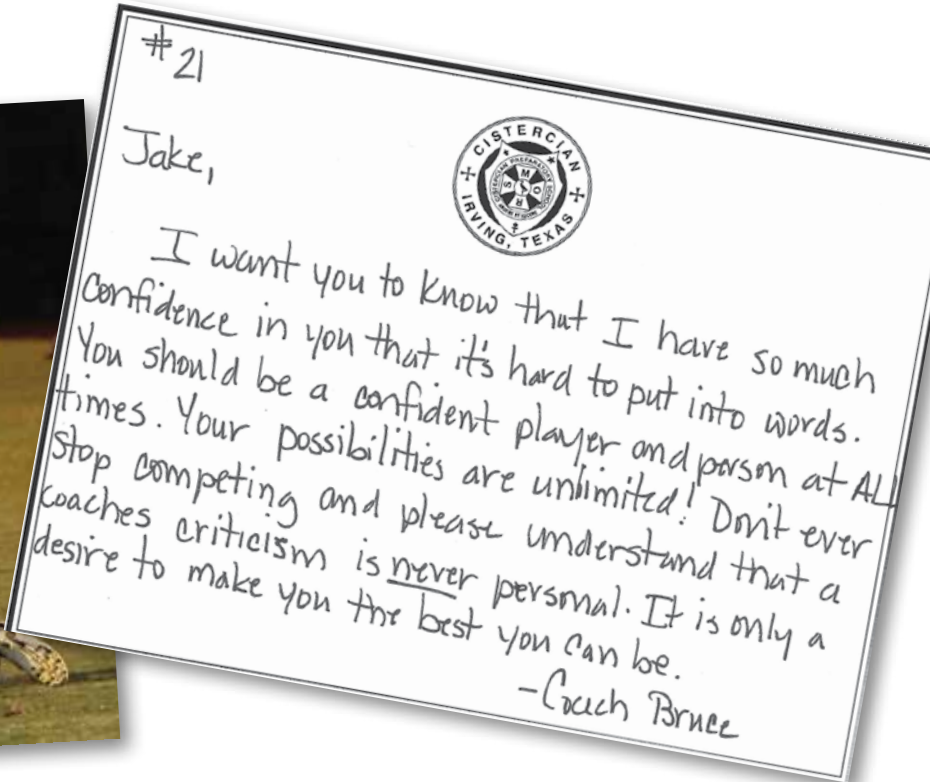 #21
CISTERCIAN
IRVING, TEXAS
CISTERCIAN PREPARATORY SCHOOL
M
S
O
R
Jake,
I want you to know that I have so much
confidence in you that it's hard to put into words.
You should be a confident player and person at ALL
times. Your possibilities are unlimited! Don't ever
stop competing and please understand that a
coaches criticism is never personal. It is only a
desire to make you the best you can be.
-Coach Bruce